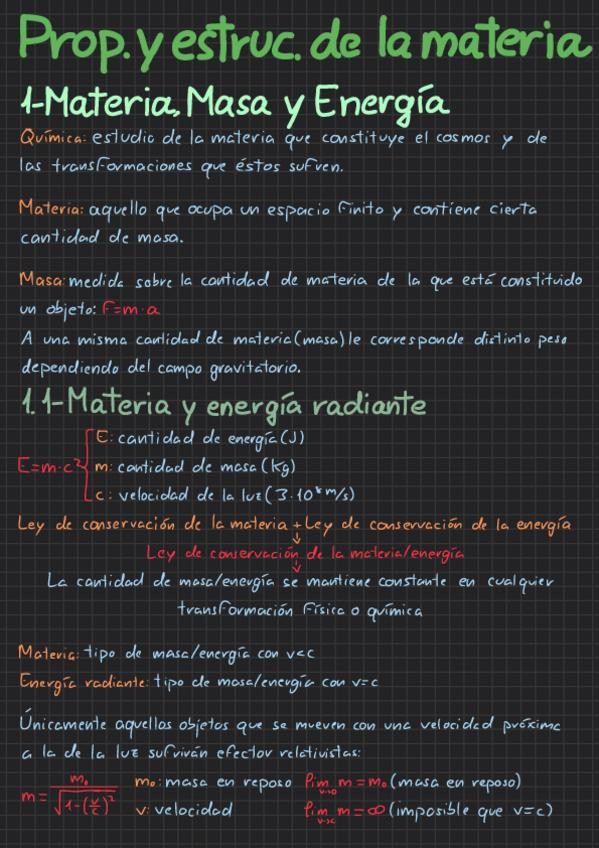 Prop. y estruc. de la materia
1-Materia, Masa y Energía
Química: estudio de la materia que constituye el cosmos y de
las transformaciones que éstos sufren.
Materia: aquello que ocupa un espacio finito y contiene cierta
cantidad de masa.
Masa: medida sobre la cantidad de materia de la que está constituido
un objeto: F=m·a
A una misma cantidad de materia (masa) le corresponde distinto peso
dependiendo del campo gravitatorio.
1.1-Materia y energía radiante
E: cantidad de energía (J)
E=m·c² m: cantidad de masa (Kg)
c: velocidad de la luz (3·10⁸ m/s)
Ley de conservación de la materia + Ley de conservación de la energía
↓
Ley de conservación de la materia/energía
↓
La cantidad de masa/energía se mantiene constante en cualquier
transformación física o química
Materia: tipo de masa/energía con v<c
Energía radiante: tipo de masa/energía con v=c
Únicamente aquellos objetos que se mueven con una velocidad próxima
a la de la luz sufrirán efector relativistas:
m = m₀ / √(1-(v/c)²) m₀: masa en reposo lim v→0 m = m₀ (masa en reposo)
v: velocidad lim v→c m = ∞ (imposible que v=c)